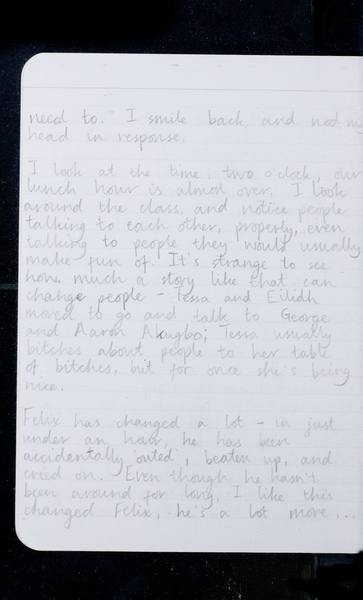 need to. I smile back and nod my
head in response.
I look at the time, two o'clock, our
lunch hour is almost over. I look
around the class, and notice people
talking to each other, properly, even
talking to people they would usually
make fun of. It's strange to see
how much a story like that can
change people - Tessa and Eilidh
moved to go and talk to George
and Aaron Akugbo; Tessa usually
bitches about people to her table
of bitches, but for once she's being
nice.
Felix has changed a lot - in just
under an hour, he has been
accidentally 'outed', beaten up, and
cried on. Even though he hasn't
been around for long, I like this
changed Felix, he's a lot more...